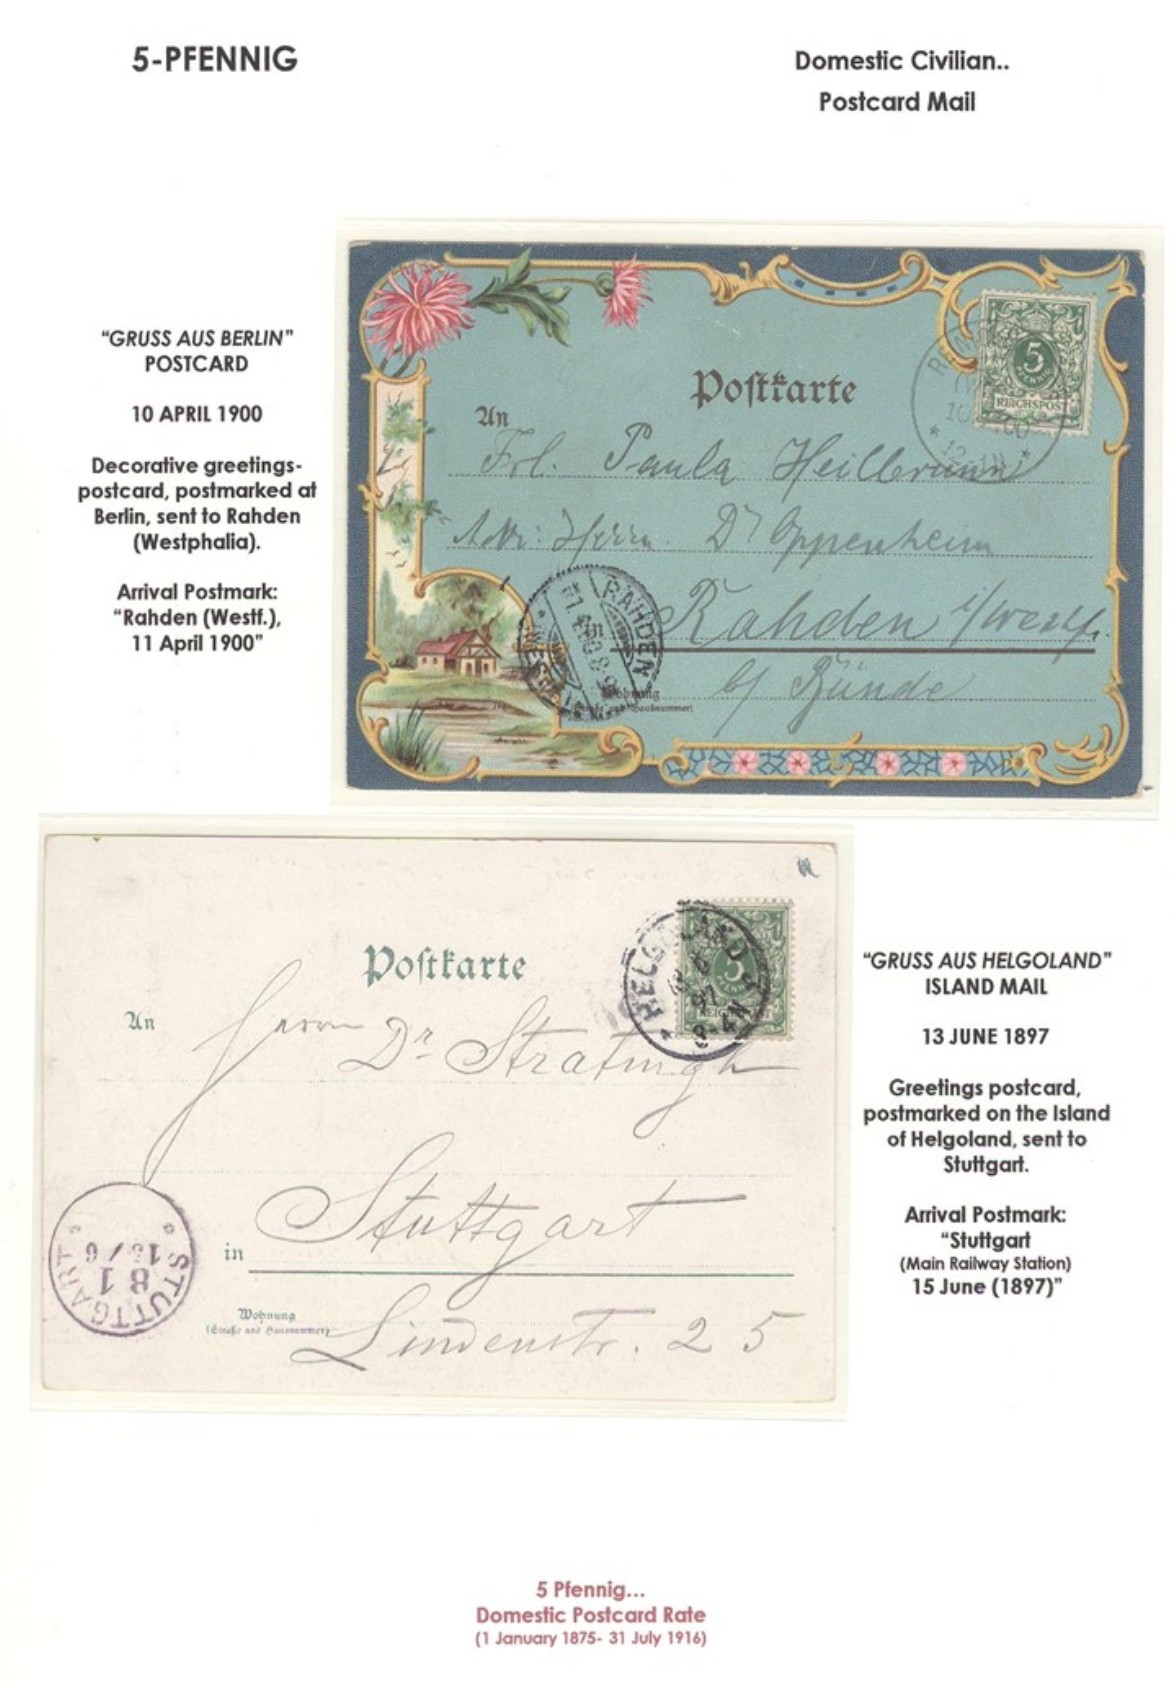 5-PFENNIG
Domestic Civilian..
Postcard Mail
“GRUSS AUS BERLIN”
POSTCARD
10 APRIL 1900
Decorative greetings-
postcard, postmarked at
Berlin, sent to Rahden
(Westphalia).
Arrival Postmark:
“Rahden (Westf.),
11 April 1900”
Postkarte
An
5
PFENNIG
REICHSPOST
Frl. Paula Heilbrunn
Adr: Herrn Dr Oppenheim
Rahden i/Westf.
b/ Bünde
RAHDEN
Wohnung
(Straße und Hausnummer)
Postkarte
An
HELGOLAND
13 6
97
3-4N
5
REICHSPOST
Herrn
Dr. Stratingh
Stuttgart
in
Wohnung
(Straße und Hausnummer)
Lindenstr. 25
STUTTGART
81
15/6
“GRUSS AUS HELGOLAND”
ISLAND MAIL
13 JUNE 1897
Greetings postcard,
postmarked on the Island
of Helgoland, sent to
Stuttgart.
Arrival Postmark:
“Stuttgart
(Main Railway Station)
15 June (1897)”
5 Pfennig...
Domestic Postcard Rate
(1 January 1875- 31 July 1916)